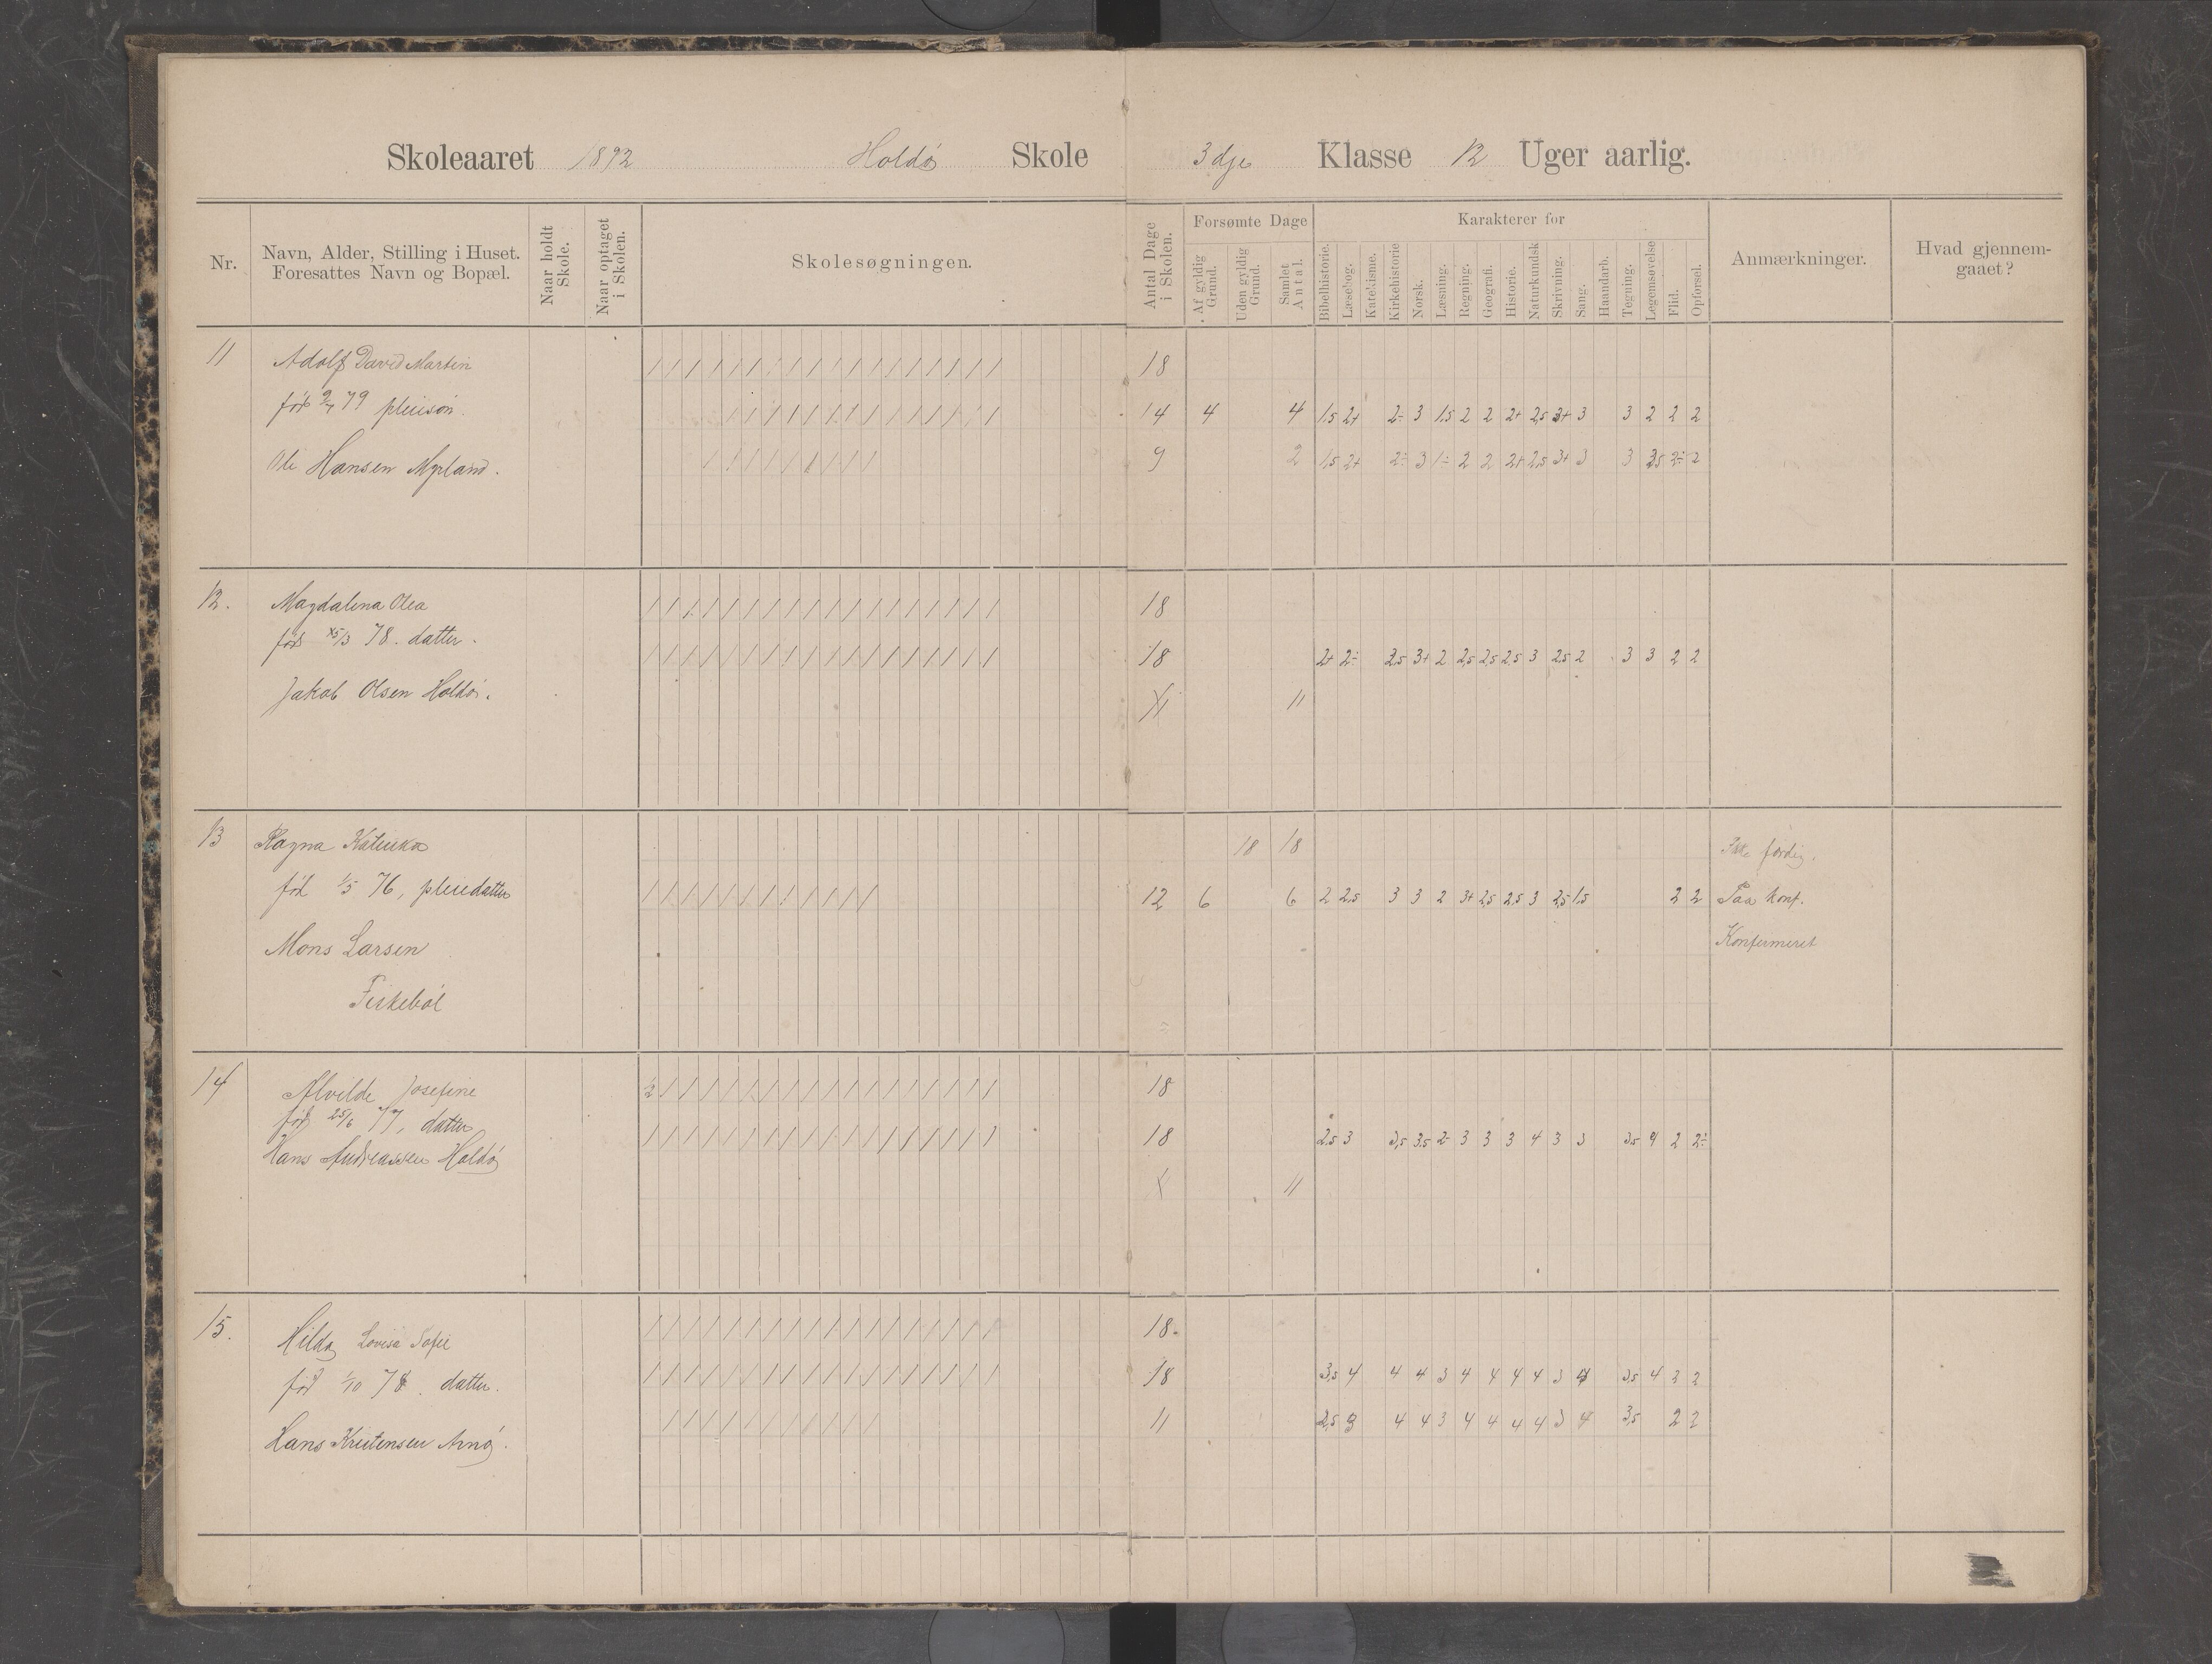 Skoleaaret 1892 Holdö Skole 3dje Klasse 12 Uger aarlig.
Nr. Navn, Alder, Stilling i Huset. Foresattes Navn og Bopæl. Naar holdt Skole. Naar optaget i Skolen. Skolesøgningen. Antal Dage i Skolen. Forsømte Dage Af gyldig Grund. Uden gyldig Grund. Samlet Antal. Karakterer for Bibelhistorie. Læsebog. Katekisme. Kirkehistorie Norsk. Læsning. Regning. Geografi. Historie. Naturkundsk Skrivning. Sang. Haandarb. Tegning. Legemsøvelse Flid. Opførsel. Anmærkninger. Hvad gjennemgaaet?
11 Adolf David Martin 18
født 9/7 79 pleiesøn. 14 4 4 1,5 2+ 2÷ 3 1,5 2 2 2+ 2,5 3+ 3 3 2 2 2
Ole Hansen Myrland. 9 2 1,5 2+ 2÷ 3 1÷ 2 2 2+ 2,5 3+ 3 3 3,5 2÷ 2
12. Magdalena Olea 18
født 15/3 78. datter. 18 2+ 2÷ 2,5 3+ 2 2,5 2,5 2,5 3 2,5 2 3 3 2 2
Jakob Olsen Holdö. 11
13 Ragna Katinka 18 18 færdig.
født 1/5 76, pleiedatter 12 6 6 2 2,5 3 3 2 3+ 2,5 2,5 3 2,5 1,5 2 2 Paa konf.
Mons Larsen Konfirmeret
Fiskeböl
14 Alvilde Josefine 1/2 18
født 25/6 77, datter 18 2,5 3 3,5 3,5 2- 3 3 3 4 3 3 3,5 4 2 2÷
Hans Andreassen Holdö 11
15. Hilda Lovise Sofie 18.
født 1/10 78. datter. 18 3,5 4 4 4 3 4 4 4 4 3 4 3,5 4 2 2
Hans Kristensen Arnö. 11 2,5 3 4 4 3 4 4 4 4 3 4 3,5 2 2